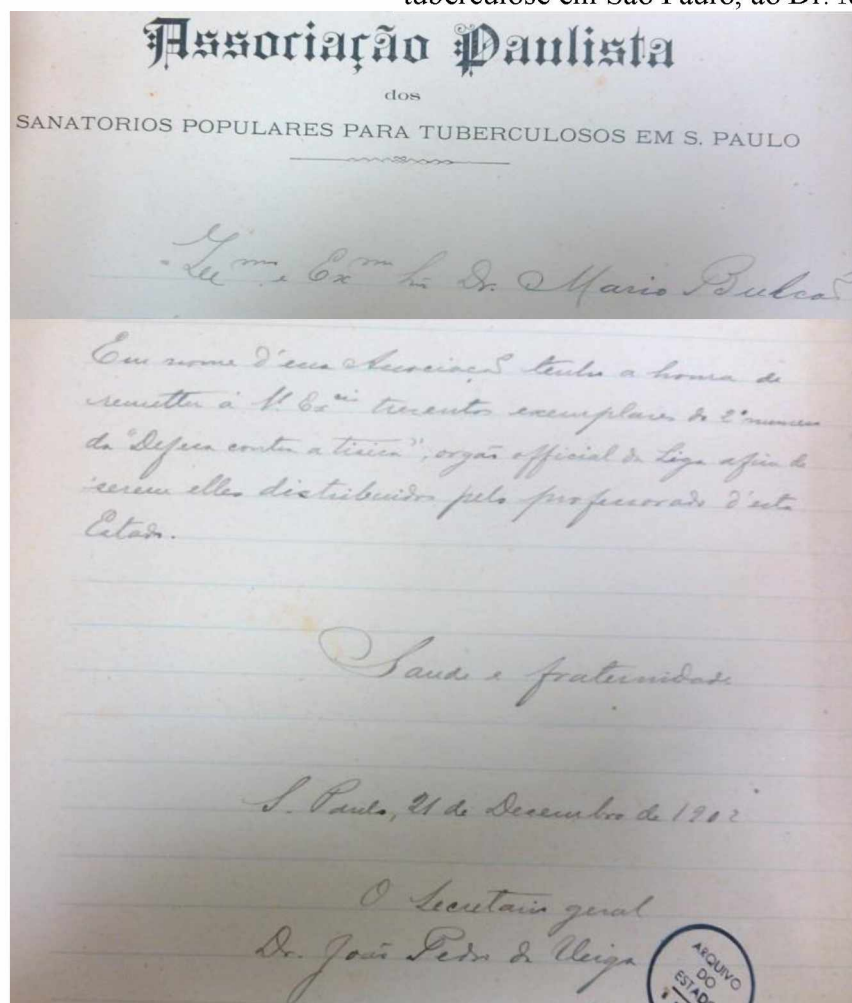 tuberculose em São Paulo, ao Dr.
Associação Paulista
dos
SANATORIOS POPULARES PARA TUBERCULOSOS EM S. PAULO
Exmo Dr. Mario Bulcão
Em nome d'essa Associação tenho a honra de
remetter á V. Excia trezentos exemplares do 2º numero
da "Defesa contra a tisica", orgão official da Liga afim de
serem elles distribuidos pelo professorado d'este
Estado.
Saude e fraternidade
S. Paulo, 21 de Decembro de 1902
O Secretario geral
Dr. João Pedro da Veiga
ARQUIVO
DO
ESTADO